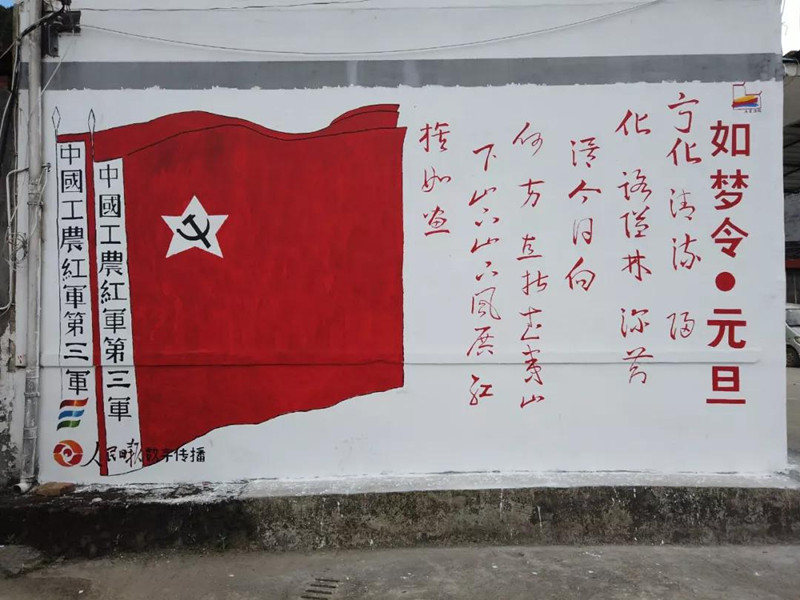 如梦令•元旦
宁化清流 归
化 路隘林深苔
滑今日向
何方 直指武夷山
下山下山下风展红
旗如画
中國工農紅軍第三軍
中國工農紅軍第三軍
人民日报数字传播